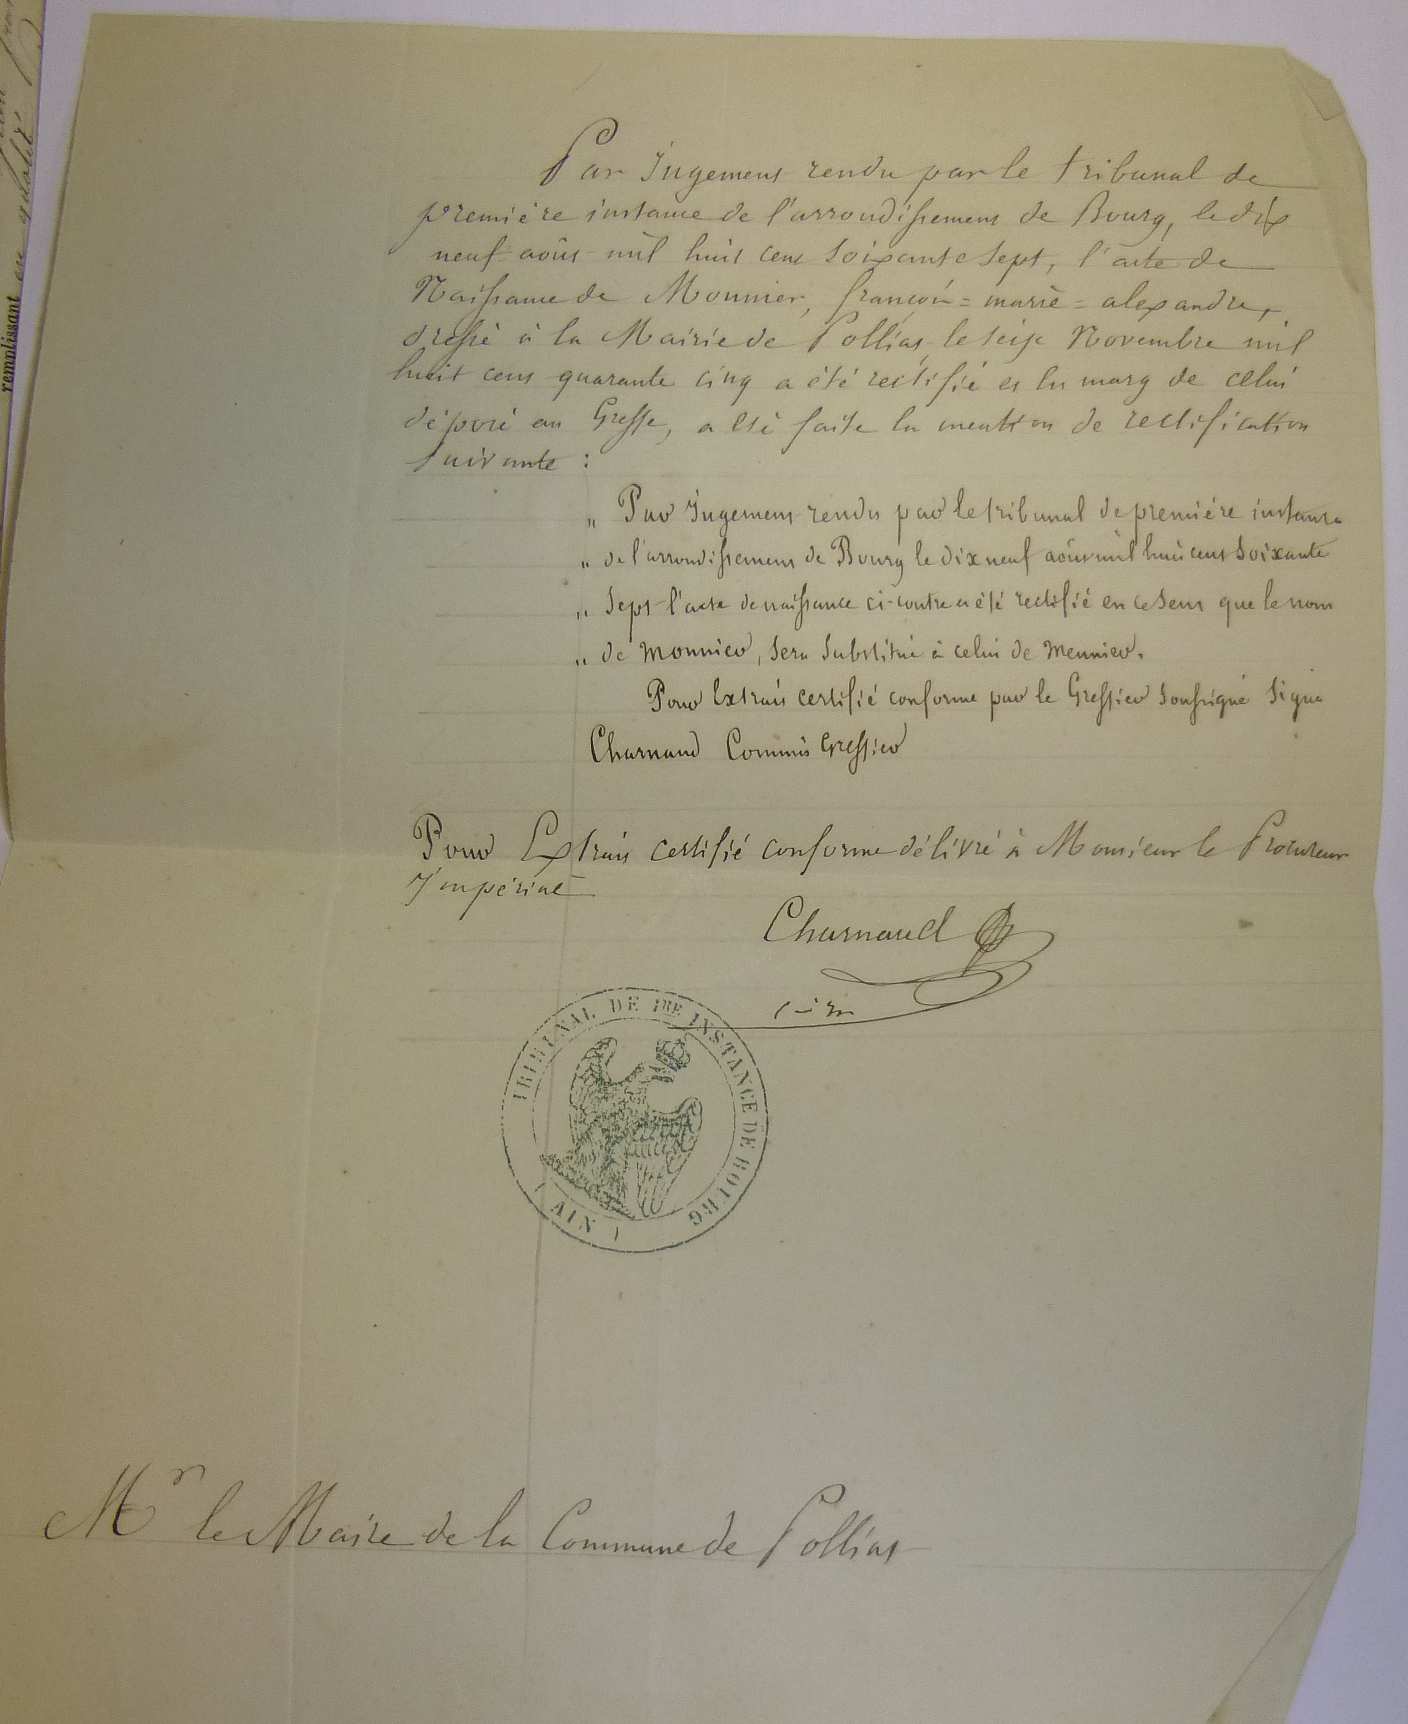 Par Jugement rendu par le tribunal de
première instance de l'arrondissement de Bourg, le dix
neuf août mil huit cent soixante sept, l'acte de
Naissance de Monnier, françois = marie = alexandre,
dressé à la Mairie de Polliat, le seize Novembre mil
huit cent quarante cinq a été rectifié et en marg de celui
déposé au Greffe, a été faite la mention de rectification
suivante :
" Par Jugement rendu par le tribunal de première instance
" de l'arrondissement de Bourg le dix neuf août mil huit cent soixante
" sept l'acte de naissance ci-contre a été rectifié en ce sens que le nom
" de Monnier, sera substitué à celui de Meunier.
Pour Extrait certifié conforme par le Greffier soussigné signé
Charnaud Commis Greffier
Pour Extrait certifié conforme délivré à Monsieur le Procureur
Impérial
Charnaud
TRIBUNAL DE 1RE INSTANCE DE BOURG
( AIN )
Mr le Maire de la Commune de Polliat
remplissant